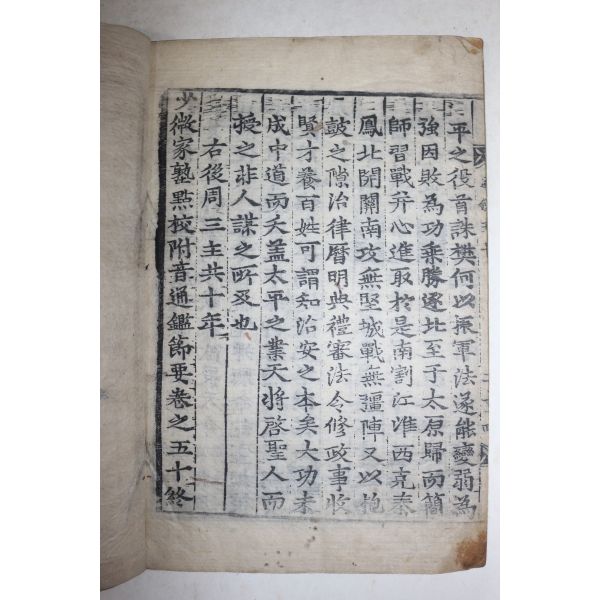 平之役首誅樊何以振軍法遂能變弱為
強因敗為功乘勝逐北至于太原歸而簡
師習戰并心進取於是南割江淮西克秦
鳳北開關南攻無堅城戰無彊陣又以枹
鼓之隙治律曆明典禮審法令修政事收
賢才養百姓可謂知治安之本矣大功未
成中道而夭盖太平之業天將啓聖人而
授之非人謀之所及也
右後周三主共十年
少微家塾點校附音通鑑節要卷之五十終